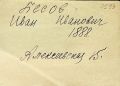 Бесов
Иван Иванович
1888
Алексеевку Б.